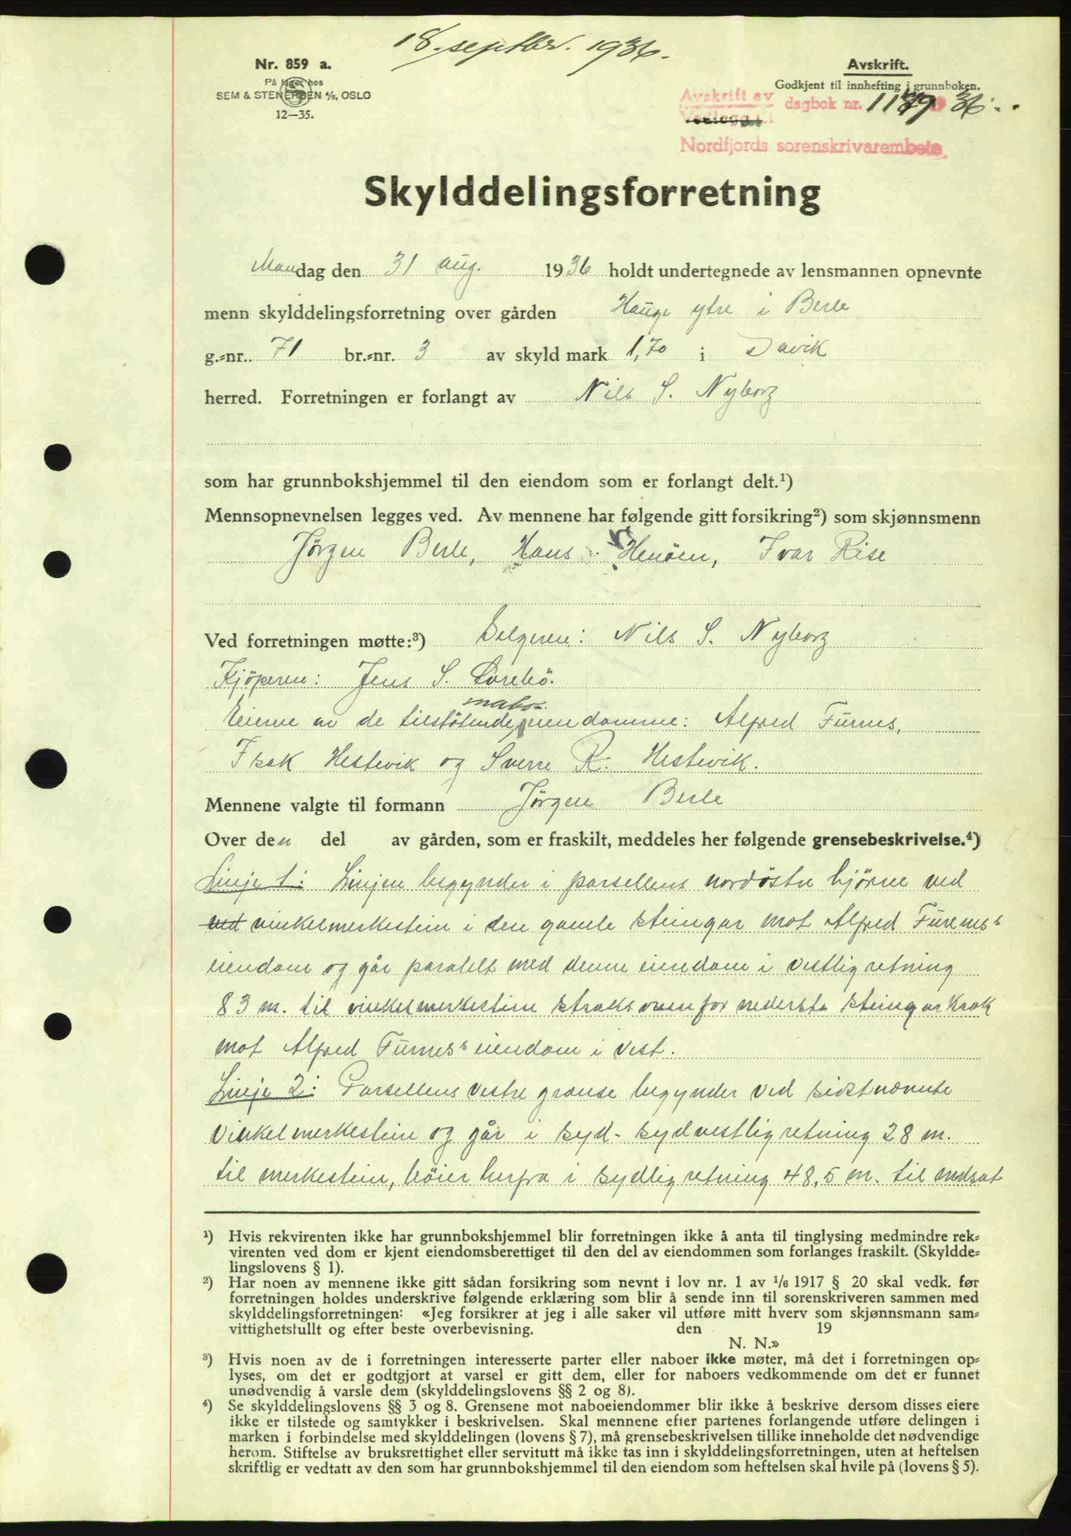 18. septbr. 1936.
Nr. 859 a.
På lager hos
SEM & STENERSEN A/S, OSLO
12—35.
Avskrift.
Godkjent til innhefting i grunnboken.
Avskrift av dagbok nr. 1179 36.
Nordfjords sorenskrivarembete
Skylddelingsforretning
Mandag den 31 aug. 1936 holdt undertegnede av lensmannen opnevnte
menn skylddelingsforretning over gården Hauge ytre i Berle
g.-nr. 71 br.-nr. 3 av skyld mark 1,70 i Davik
herred. Forretningen er forlangt av Nils S. Nyborg
som har grunnbokshjemmel til den eiendom som er forlangt delt.¹)
Mennsopnevnelsen legges ved. Av mennene har følgende gitt forsikring²) som skjønnsmenn
Jørgen Berle, Hans Henöen, Ivar Rise
Ved forretningen møtte:³) Selgeren: Nils S. Nyborg
Kjöperen: Jens S. Sörebö.
nabo
Eierne av de tilstötende eiendomme: Alfred Furnes,
Isak Hestevik og Sverre R. Hestevik.
Mennene valgte til formann Jørgen Berle
Over den del av gården, som er fraskilt, meddeles her følgende grensebeskrivelse.⁴)
Linje 1: Linjen begynder i parsellens nordöstre hjörne ved
ved vinkelmerkestein i den gamle steingar mot Alfred Furnes's
eiendom og går paralelt med denne eiendom i vestlig retning
83 m. til vinkelmerkestein straks ovenfor nederste steingar krok
mot Alfred Furnes's eiendom i vest.
Linje 2: Parsellens vestre grense begynder ved sidstnevnte
vinkelmerkestein og går i syd-sydvestlig retning 28 m.
til merkestein, böier herfra i sydlig retning 48,5 m. til nedsat
¹) Hvis rekvirenten ikke har grunnbokshjemmel blir forretningen ikke å anta til tinglysing medmindre rek-
virenten ved dom er kjent eiendomsberettiget til den del av eiendommen som forlanges fraskilt. (Skyldde-
lingslovens § 1).
²) Har noen av mennene ikke gitt sådan forsikring som nevnt i lov nr. 1 av 1/6 1917 § 20 skal vedk. før
forretningen holdes underskrive følgende erklæring som blir å sende inn til sorenskriveren sammen med
skylddelingsforretningen: «Jeg forsikrer at jeg i alle saker vil utføre mitt hverv som skjønnsmann sam-
vittighetsfullt og efter beste overbevisning. den 19
N. N.»
³) Hvis noen av de i forretningen interesserte parter eller naboer ikke møter, må det i forretningen op-
lyses, om det er godtgjort at varsel er gitt dem, eller for naboers vedkommende om det er funnet
unødvendig å varsle dem (skylddelingslovens §§ 2 og 8).
⁴) Se skylddelingslovens §§ 3 og 8. Grensene mot naboeiendommer blir ikke å beskrive dersom disses eiere
ikke er tilstede og samtykker i beskrivelsen. Skal mennene efter partenes forlangende utføre delingen i
marken i forbindelse med skylddelingen (lovens § 7), må grensebeskrivelsen tillike inneholde det nødvendige
herom. Stiftelse av bruksrettighet eller servitutt må ikke tas inn i skylddelingsforretningen, uten at heftelsen
skriftlig er vedtatt av den som har grunnbokshjemmel til den eiendom som heftelsen skal hvile på (lovens § 5).